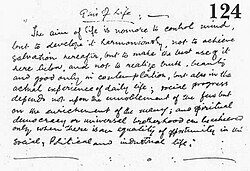 124
Aim of Life:
The aim of life is no more to control mind
but to develop it harmoniously, not to achieve
salvation hereafter, but to make the best use of it
here below, and not to realise truth, beauty
and good only in contemplation, but also in the
actual experience of daily life; social progress
depends not upon the ennoblement of the few but
on the enrichment of the many; and spiritual
democracy or universal brotherhood can be achieved
only when there is an equality of opportunity in the
social, Political and industrial life.